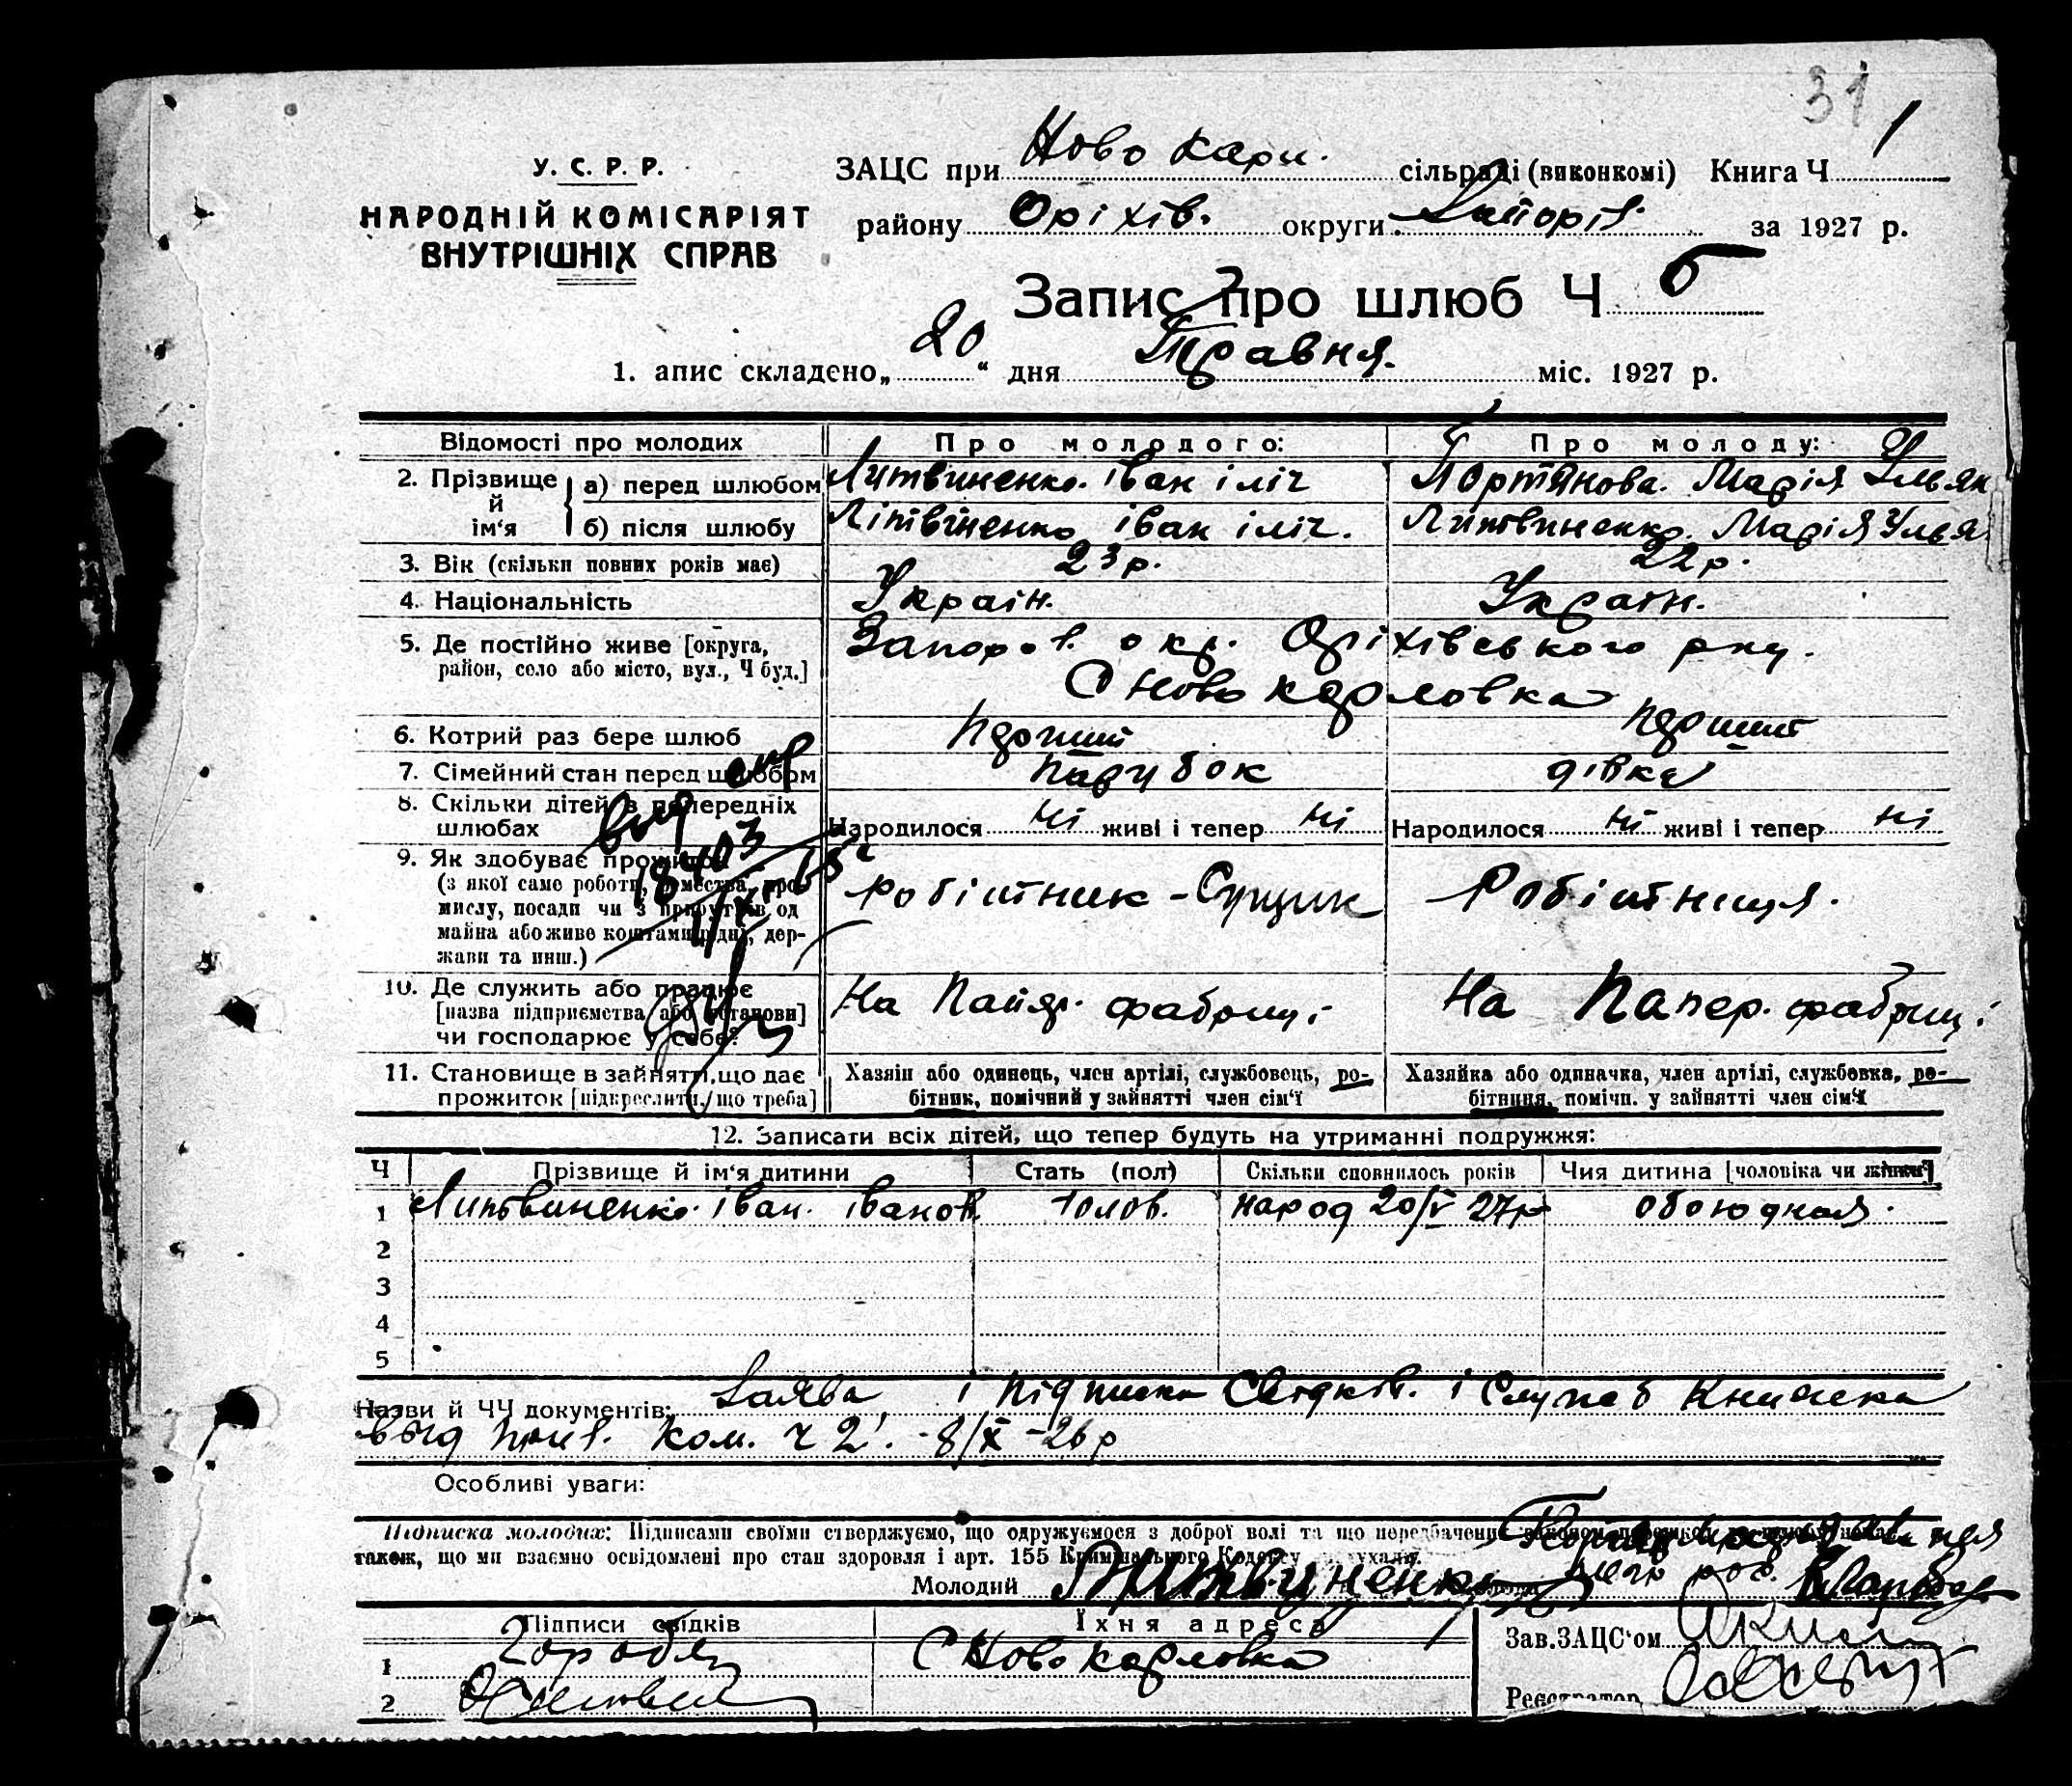 31
У. С. Р. Р.
НАРОДНІЙ КОМІСАРІЯТ
ВНУТРІШНІХ СПРАВ
ЗАЦС при Ново Карл. сільраді (виконкомі) Книга Ч 1
району Оріхів. округи Запоріз. за 1927 р.
Запис про шлюб Ч 5
1. апис складено „20“ дня Травня. міс. 1927 р.
Відомості про молодих Про молодого: Про молоду:
2. Прізвище й ім‘я
а) перед шлюбом Литвиненко. Іван іліч Портянова. Марія Ульян
б) після шлюбу Літвіненко іван іліч. Литвиненко. Марія Улья
3. Вік (скільки повних років має) 23 р. 22 р.
4. Національність Украін. Украін.
5. Де постійно живе [округа, район, село або місто, вул., Ч буд.] Запоріз. окр. Оріхівського рну.
С Ново карловка
6. Котрий раз бере шлюб перший перший
7. Сімейний стан перед шлюбом парубок дівка
8. Скільки дітей в попередніх шлюбах Народилося ні живі і тепер ні Народилося ні живі і тепер ні
9. Як здобуває прожиток
(з якої саме роботи, ремества, про-
мислу, посади чи з прибутків од
майна або живе коштами рідні, дер-
жави та инш.) робітник - Сущик Робітниця.
10. Де служить або працює
[назва підприємства або установи]
чи господарює у себе? На фабриці На Папер. фабриці
11. Становище в зайнятті, що дає
прожиток [підкреслити, що треба]
Хазяїн або одинець, член артілі, службовець, ро-
бітник, помічний у зайнятті член сім‘ї
Хазяйка або одиначка, член артілі, службовка, ро-
бітниця, помічн. у зайнятті член сім‘ї
12. Записати всіх дітей, що тепер будуть на утриманні подружжя:
Ч Прізвище й ім‘я дитини Стать (пол) Скільки сповнилось років Чия дитина [чоловіка чи жінки]
1 Литвиненко. іван. іванов. чолов. народ 20/V 27р обоюдная.
2
3
4
5
Назви й ЧЧ документів: Заява і підписка Свідків. і Служеб Книжека
выд ком. ч 2. 8/X -26 р
Особливі уваги:
Підписка молодих: Підписами своїми стверджуємо, що одружуємося з доброї волі та що передбачених законом перешкод
також, що ми взаємно освідомлені про стан здоровля і арт. 155 Кримінального Кодексу
Молодий Литвиненко
Підписи свідків Їхня адреса
1 С Ново карловка
2
Зав. ЗАЦС‘ом
Реєстратор